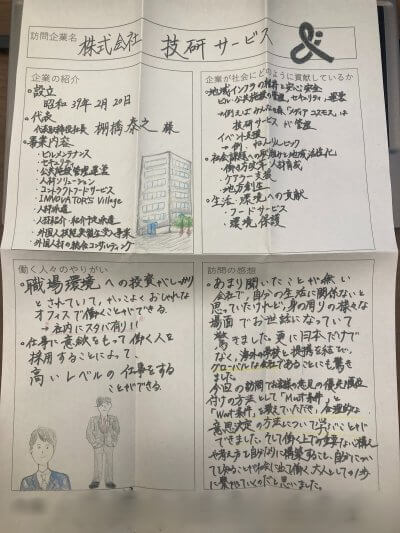 訪問企業名 株式会社 技研サービス
企業の紹介
・設立
昭和39年2月20日
・代表
代表取締役社長 棚橋泰之 様
・事業内容
・ビルメンテナンス
・セキュリティ
・公共施設管理運営
・人材ソリューション
・コントラクトフードサービス
・INNOVATOR'S Village
・人材派遣
・人材紹介・紹介予定派遣
・外国人技能実習生受入事業
・外国人材の総合コンサルティング
企業が社会にどのように貢献しているか
・地域インフラの維持と安心安全
ビル・公共施設の管理、セキュリティ、運営
→例えばみんなの森「メディアコスモス」は
技研サービスが管理
イベント支援
→例、ねんりんピック
・社会課題への取組みと地域活性化
働き方改革 人材育成
ケアラー支援
地方創生
・生活、環境への貢献
フードサービス
環境保護
働く人々のやりがい
・職場環境への投資がしっかり
とされていて、かっこよくおしゃれな
オフィスで働くことができる。
→社内にスタバ有り!!
・仕事に意欲をもって働く人を
採用することによって、
高いレベルの仕事をする
ことができる。
訪問の感想
・あまり聞いたことが無い
会社で、自分の生活に関係ないと
思っていたけれど、身の周りの様々な
場面でお世話になっていて
驚きました。更に日本だけで
なく、海外の学校と提携を結ぶ
グローバルな会社であることにも驚き
ました。
今回の訪問でお客様の意見の優先順位
付けの方法として「Must条件」と
「Want条件」を教えていただき、合理的な
意思決定の方法について学ぶことが
できました。そして働く上での重要な心構え
や考え方を自分なりに構築すること、自分について
知ることが社会に出て働く大人としての1歩
に繋がっていくのだと思いました。